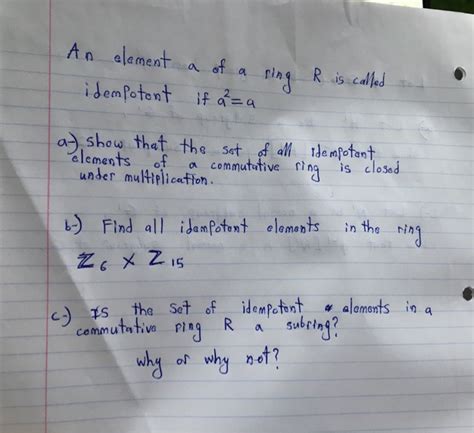 An element a of a ring R is called
idempotent if a²=a
a-) show that the set of all idempotent
elements of a commutative ring is closed
under multiplication.
b-) Find all idempotent elements in the ring
ℤ6 × ℤ15
c-) Is the set of idempotent elements in a
commutative ring R a subring?
why or why not?